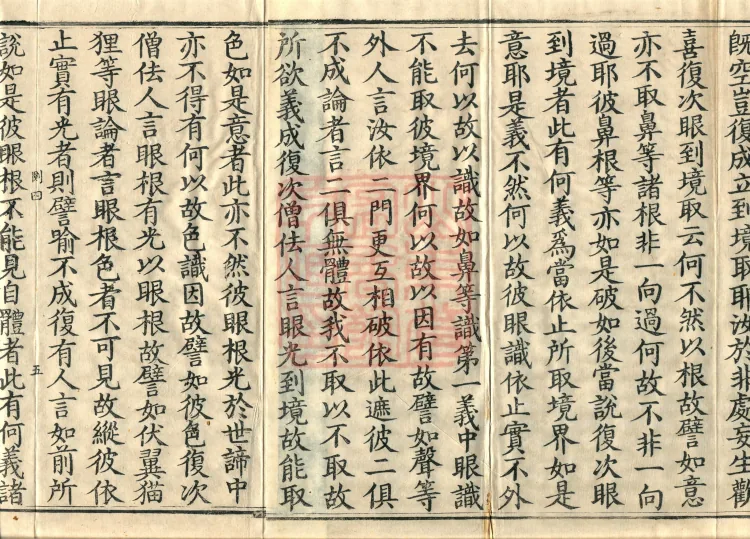 既空豈復成立到境取耶汝於非處妄生歡
喜復次眼到境取云何不然以根故譬如意
亦不取鼻等諸根非一向過何故不非一向
過耶彼鼻根等亦如是破如後當說復次眼
到境者此有何義為當依止所取境界如是
意耶是義不然何以故彼眼識依止實不外
去何以故以識故如鼻等識第一義中眼識
不能取彼境界何以故以因有故譬如聲等
外人言汝依二門更互相破依此遮彼二俱
不成論者言二俱無體故我不取以不取故
所欲義成復次僧佉人言眼光到境故能取
色如是意者此亦不然彼眼根光於世諦中
亦不得有何以故色識因故譬如彼色復次
僧佉人言眼根有光以眼根故譬如伏翼猫
狸等眼論者言眼根色者不可見故縱彼依
止實有光者則譬喻不成復有人言如前所
說如是彼眼根不能見自體者此有何義諸
四
五